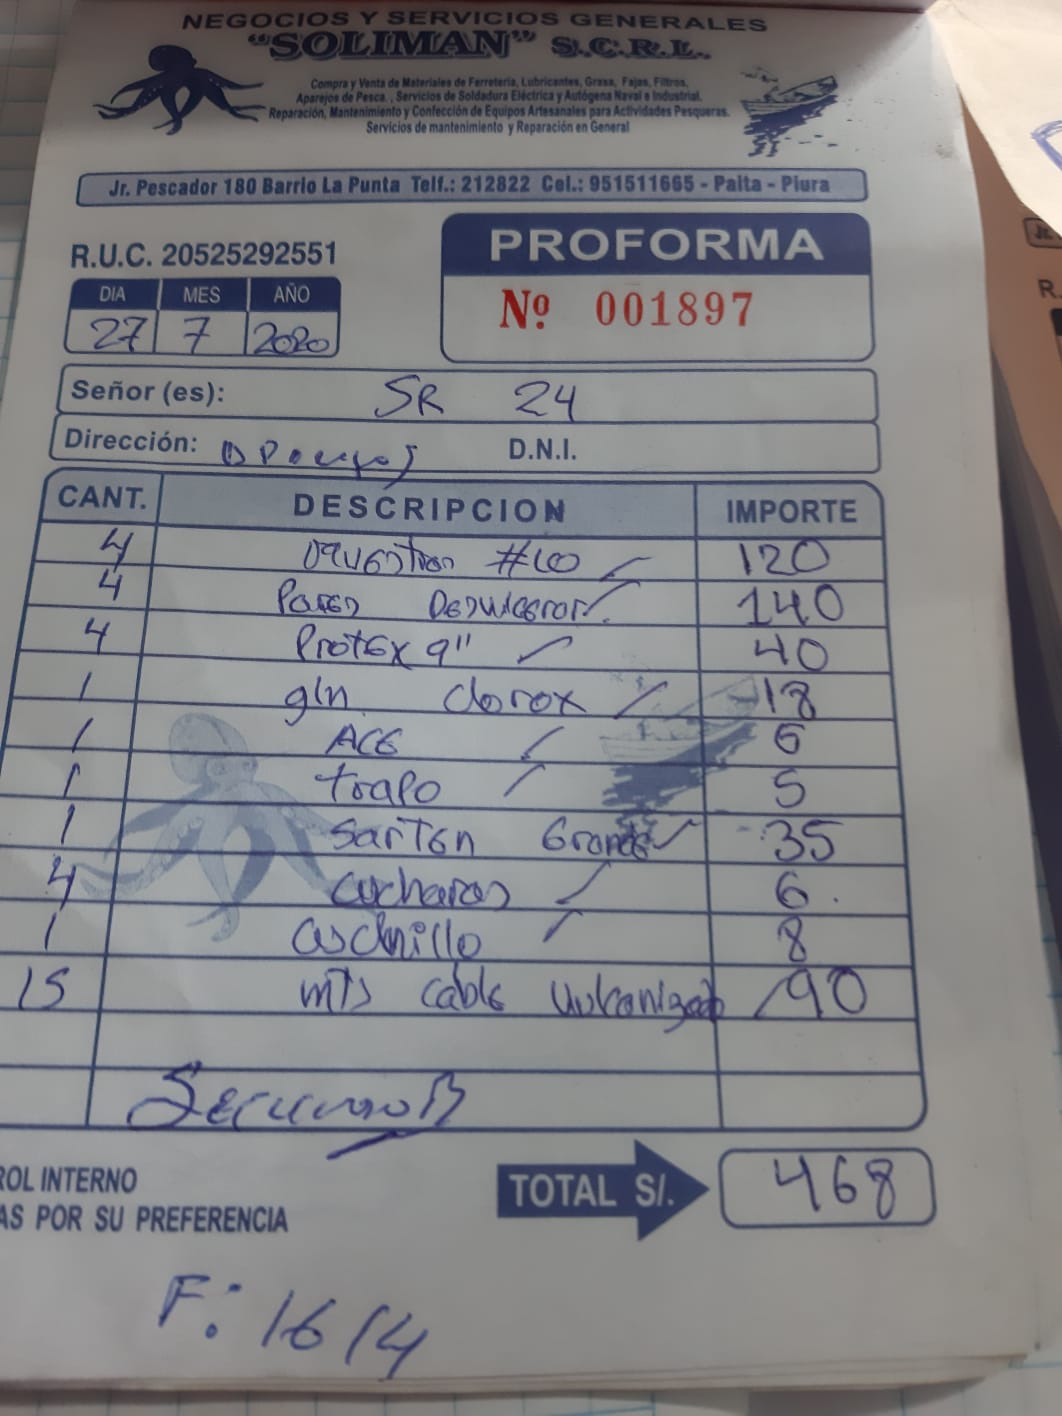 NEGOCIOS Y SERVICIOS GENERALES
"SOLIMAN" S.C.R.L.
Compra y Venta de Materiales de Ferretería, Lubricantes, Grasa, Fajas, Filtros,
Aparejos de Pesca., Servicios de Soldadura Eléctrica y Autógena Naval e Industrial.
Reparación, Mantenimiento y Confección de Equipos Artesanales para Actividades Pesqueras.
Servicios de mantenimiento y Reparación en General
Jr. Pescador 180 Barrio La Punta Telf.: 212822 Cel.: 951511665 - Paita - Piura
R.U.C. 20525292551
PROFORMA
Nº 001897
DIA MES AÑO
27 7 2020
Señor (es): SR 24
Dirección: D.N.I.
CANT. DESCRIPCION IMPORTE
4 #10 120
4 Pares 140
4 Protex 9" 40
1 gln. Clorox 18
1 ACE 6
1 trapo 5
1 Sarten Grande 35
4 Cucharas 6.
1 Cuchillo 8
15 mts cable Vulcanizado 90
TOTAL S/. 468
ROL INTERNO
AS POR SU PREFERENCIA
F: 1614
R.